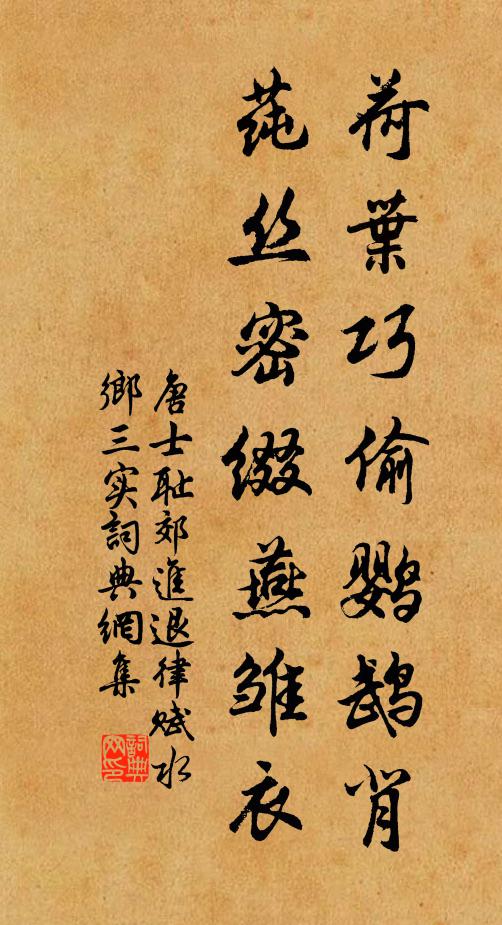 荷葉巧偷鹦鹉背
莼丝密缀燕雏衣
唐士耻郊進退律赋水
鄉三实詞典網集
詞典网印